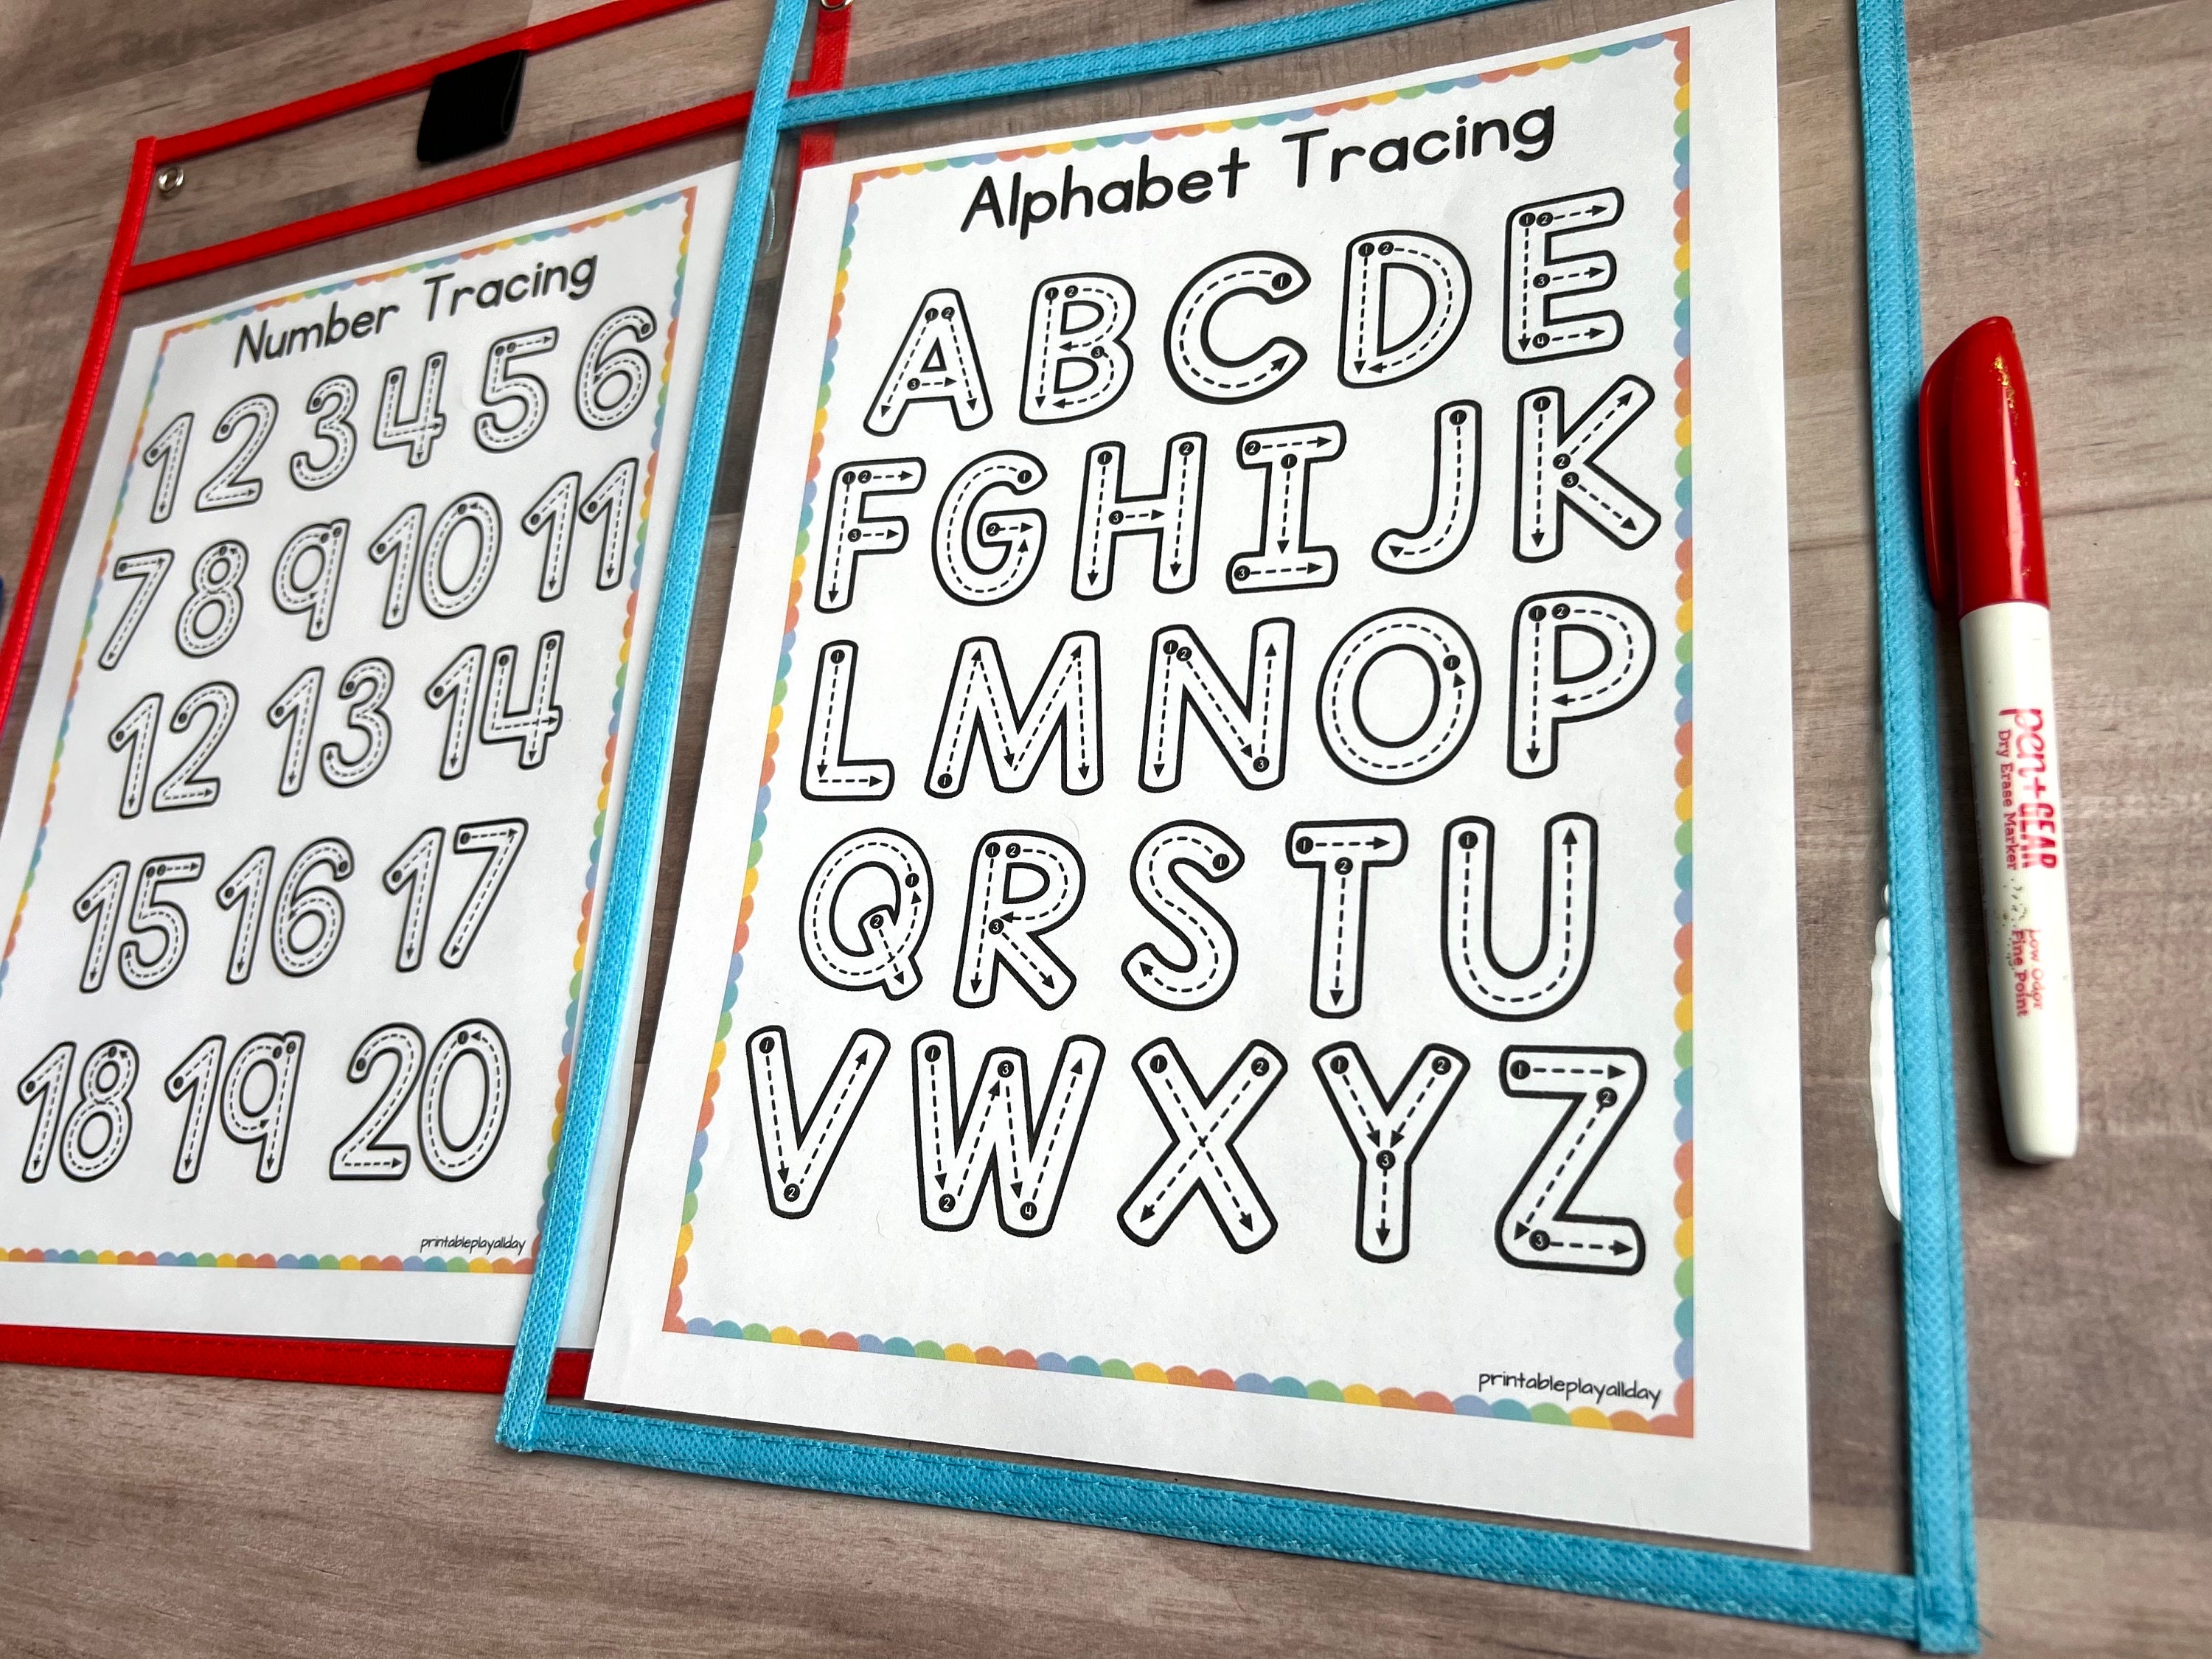 Number Tracing
1 2 3 4 5 6
7 8 9 10 11
12 13 14
15 16 17
18 19 20
printableplayallday
Alphabet Tracing
A B C D E
F G H I J K
L M N O P
Q R S T U
V W X Y Z
printableplayallday
pen+GEAR
Dry Erase Marker
Low Odor
Fine Point